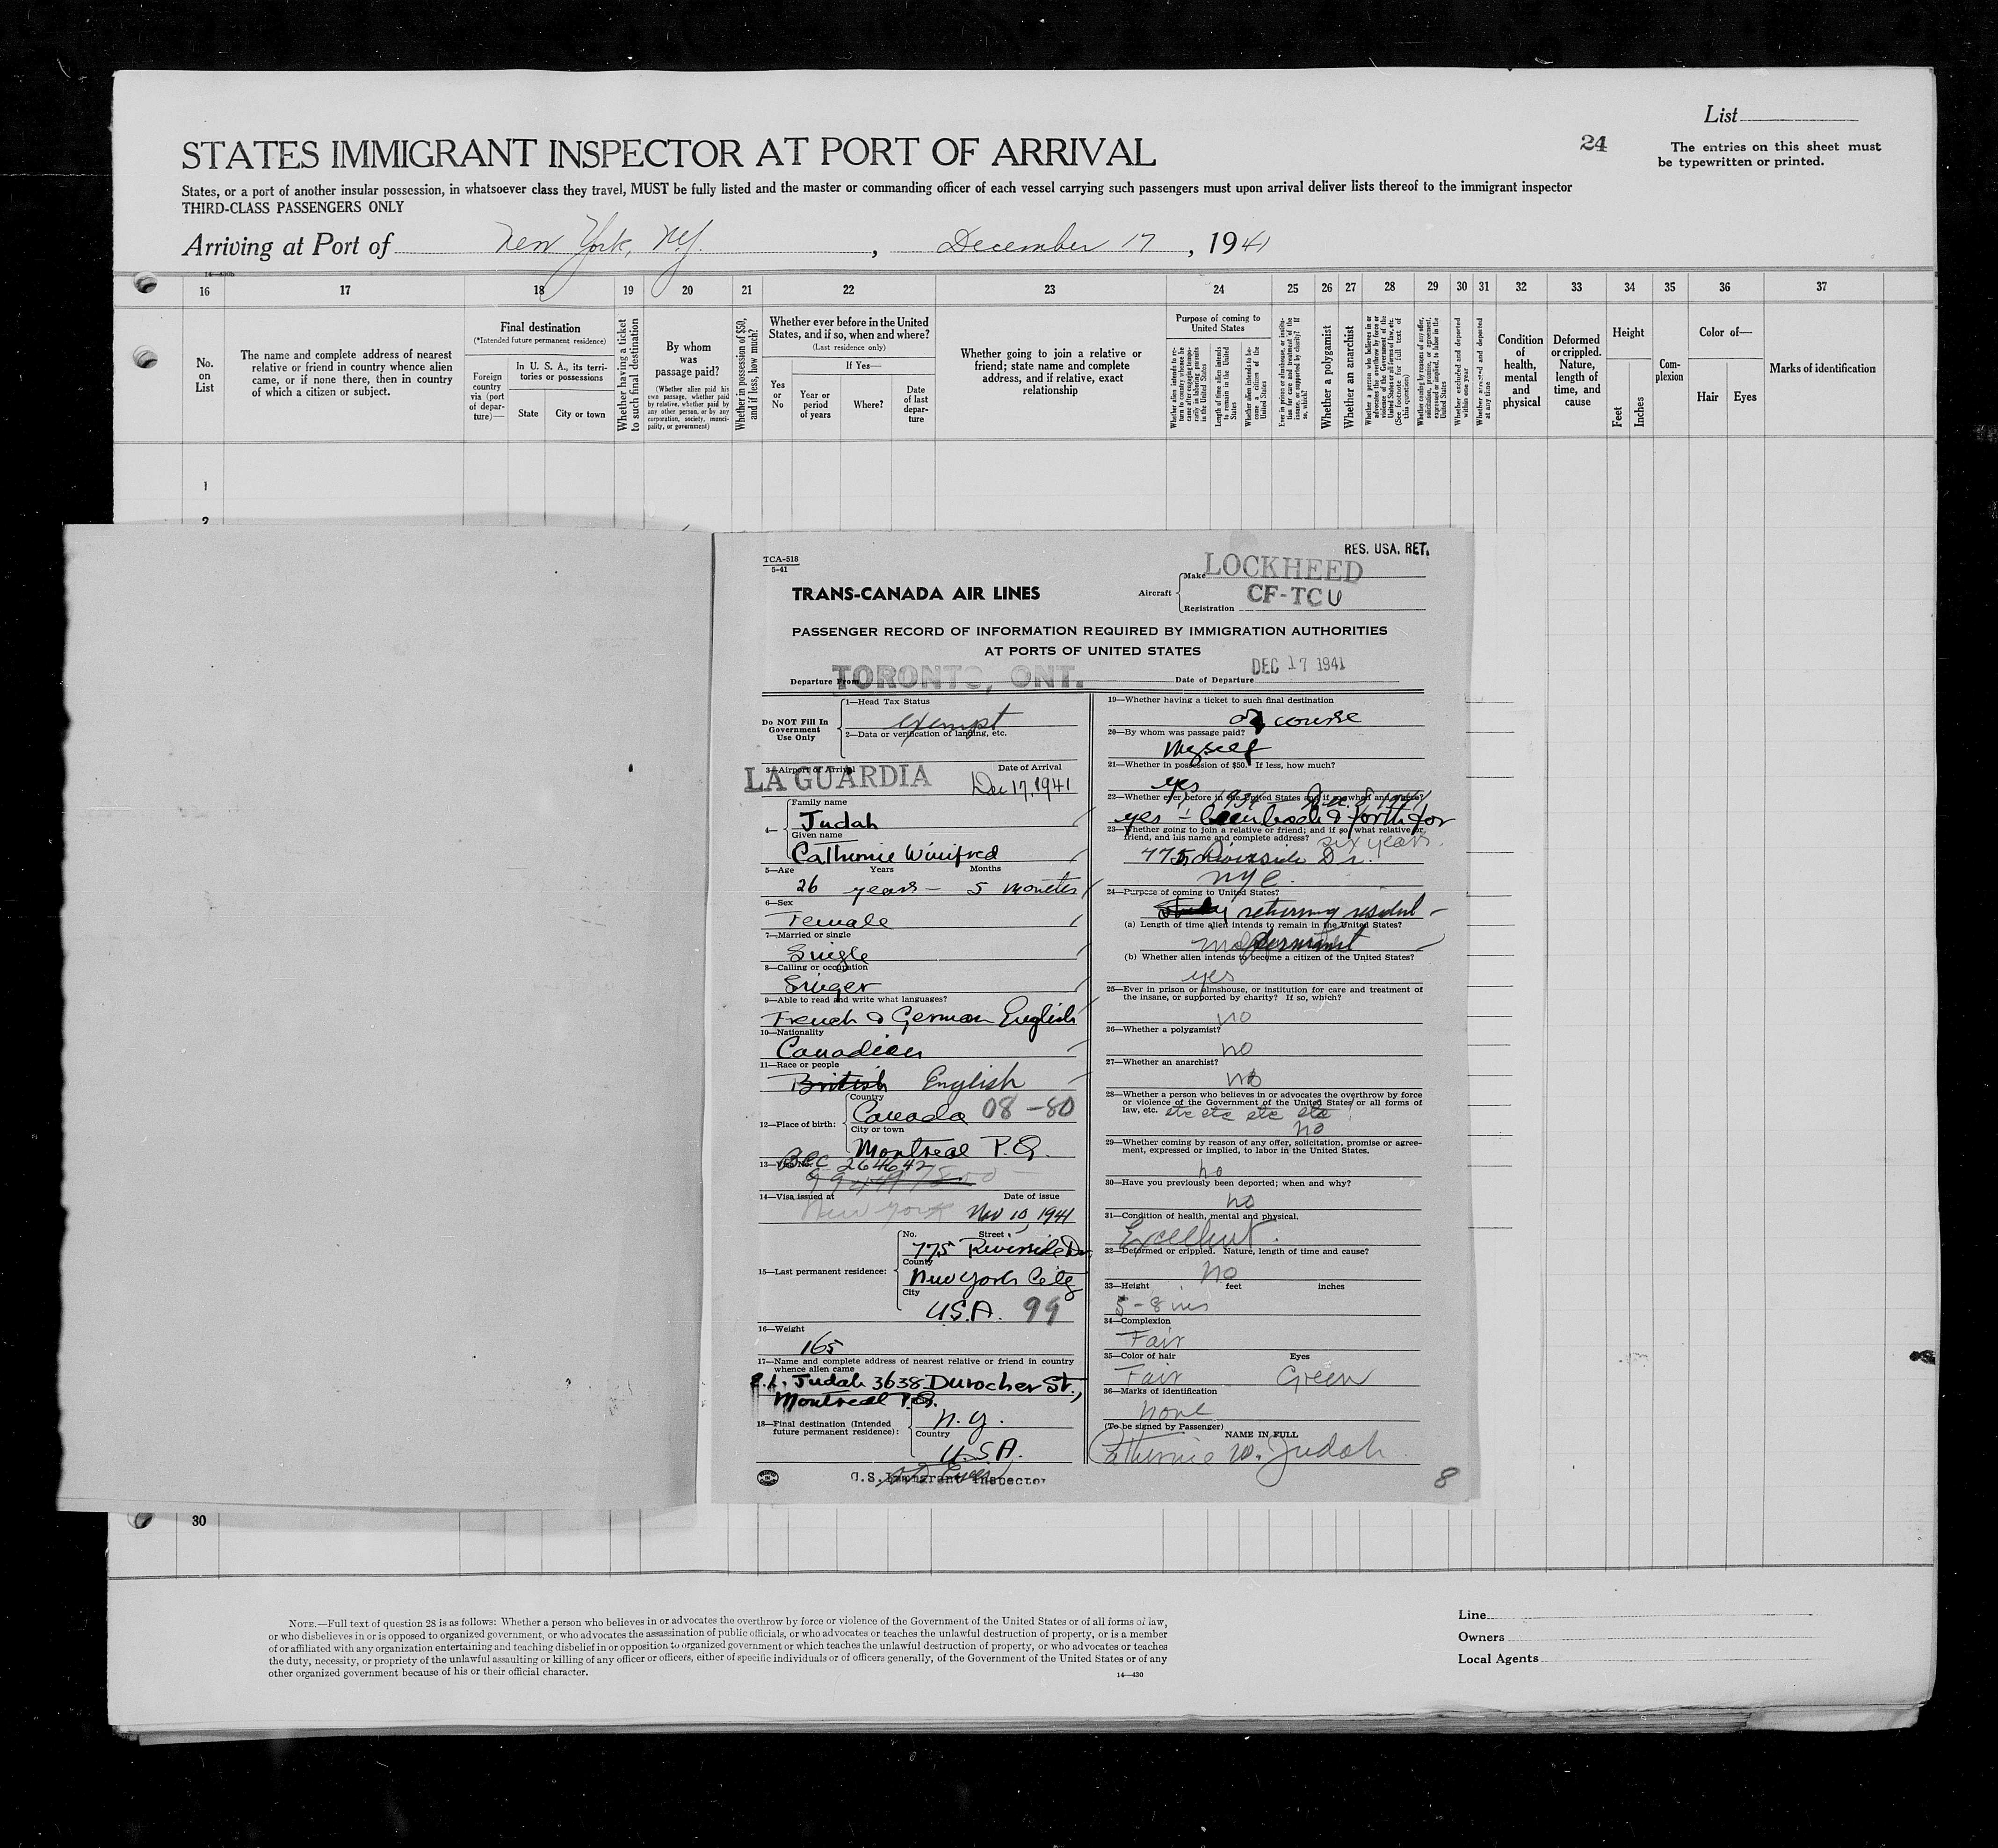 List
24
STATES IMMIGRANT INSPECTOR AT PORT OF ARRIVAL
The entries on this sheet must
be typewritten or printed.
States, or a port of another insular possession, in whatsoever class they travel, MUST be fully listed and the master or commanding officer of each vessel carrying such passengers must upon arrival deliver lists thereof to the immigrant inspector
THIRD-CLASS PASSENGERS ONLY
Arriving at Port of New York, N.Y., December 17, 1941
16 17 18 19 20 21 22 23 24 25 26 27 28 29 30 31 32 33 34 35 36 37
No. on List
The name and complete address of nearest
relative or friend in country whence alien
came, or if none there, then in country
of which a citizen or subject.
Final destination
(*Intended future permanent residence)
Foreign country via (port of departure)—
In U. S. A., its territories or possessions
State
City or town
Whether having a ticket to such final destination
By whom was passage paid?
(Whether alien paid his own passage, whether paid by relative, whether paid by any other person, or by any corporation, society, municipality, or government)
Whether in possession of $50, and if less, how much?
Whether ever before in the United
States, and if so, when and where?
(Last residence only)
Yes or No
If Yes—
Year or period of years
Where?
Date of last departure
Whether going to join a relative or
friend; state name and complete
address, and if relative, exact
relationship
Purpose of coming to
United States
Length of time alien intends to remain in the United States
Whether alien intends to become a citizen of the United States
Whether a polygamist
Whether an anarchist
Condition of health, mental and physical
Deformed or crippled. Nature, length of time, and cause
Height
Feet
Inches
Complexion
Color of—
Hair
Eyes
Marks of identification
1
2
TCA-518
5-41
RES. USA. RET.
TRANS-CANADA AIR LINES
Aircraft
Make LOCKHEED
Registration CF-TCU
PASSENGER RECORD OF INFORMATION REQUIRED BY IMMIGRATION AUTHORITIES
AT PORTS OF UNITED STATES
Departure From TORONTO, ONT.
Date of Departure DEC 17 1941
Do NOT Fill In
Government
Use Only
1—Head Tax Status
exempt
2—Data or verification of landing, etc.
3—Airport of Arrival
Date of Arrival
LA GUARDIA Dec 17, 1941
4—
Family name
Judah
Given name
Catherine Winifred
5—Age Years Months
26 years — 5 months
6—Sex
Female
7—Married or single
Single
8—Calling or occupation
Singer
9—Able to read and write what languages?
French & German English
10—Nationality
Canadian
11—Race or people
British English
12—Place of birth:
Country
Canada 08-80
City or town
Montreal P.Q.
264642
14—Visa issued at Date of issue
New York Nov 10, 1941
15—Last permanent residence:
No. Street
775 Riverside Dr.
County
New York City
City
U.S.A. 99
16—Weight
165
17—Name and complete address of nearest relative or friend in country
whence alien came
Judah 3638 Durocher St.,
Montreal P.Q.
18—Final destination (Intended
future permanent residence):
N.Y.
Country
U.S.A.
U.S. Immigrant Inspector
19—Whether having a ticket to such final destination
of course
20—By whom was passage paid?
Myself
21—Whether in possession of $50. If less, how much?
yes
22—Whether ever before in the United States and if so when and where?
yes – been back & forth for
six years.
23—Whether going to join a relative or friend; and if so, what relative or
friend, and his name and complete address?
775 Riverside Dr.
NYC.
24—Purpose of coming to United States?
study returning resident –
(a) Length of time alien intends to remain in the United States?
permanent
(b) Whether alien intends to become a citizen of the United States?
yes
25—Ever in prison or almshouse, or institution for care and treatment of
the insane, or supported by charity? If so, which?
no
26—Whether a polygamist?
no
27—Whether an anarchist?
no
28—Whether a person who believes in or advocates the overthrow by force
or violence of the Government of the United States or all forms of
law, etc. etc etc etc etc!
no
29—Whether coming by reason of any offer, solicitation, promise or agree-
ment, expressed or implied, to labor in the United States.
no
30—Have you previously been deported; when and why?
no
31—Condition of health, mental and physical.
Excellent.
32—Deformed or crippled. Nature, length of time and cause?
no
33—Height feet inches
5-8 ins
34—Complexion
Fair
35—Color of hair Eyes
Fair Green
36—Marks of identification
none
(To be signed by Passenger)
NAME IN FULL
Catherine W. Judah
8
30
NOTE.—Full text of question 28 is as follows: Whether a person who believes in or advocates the overthrow by force or violence of the Government of the United States or of all forms of law,
or who disbelieves in or is opposed to organized government, or who advocates the assassination of public officials, or who advocates or teaches the unlawful destruction of property, or is a member
of or affiliated with any organization entertaining and teaching disbelief in or opposition to organized government or which teaches the unlawful destruction of property, or who advocates or teaches
the duty, necessity, or propriety of the unlawful assaulting or killing of any officer or officers, either of specific individuals or of officers generally, of the Government of the United States or of any
other organized government because of his or their official character.
14—430
Line
Owners
Local Agents